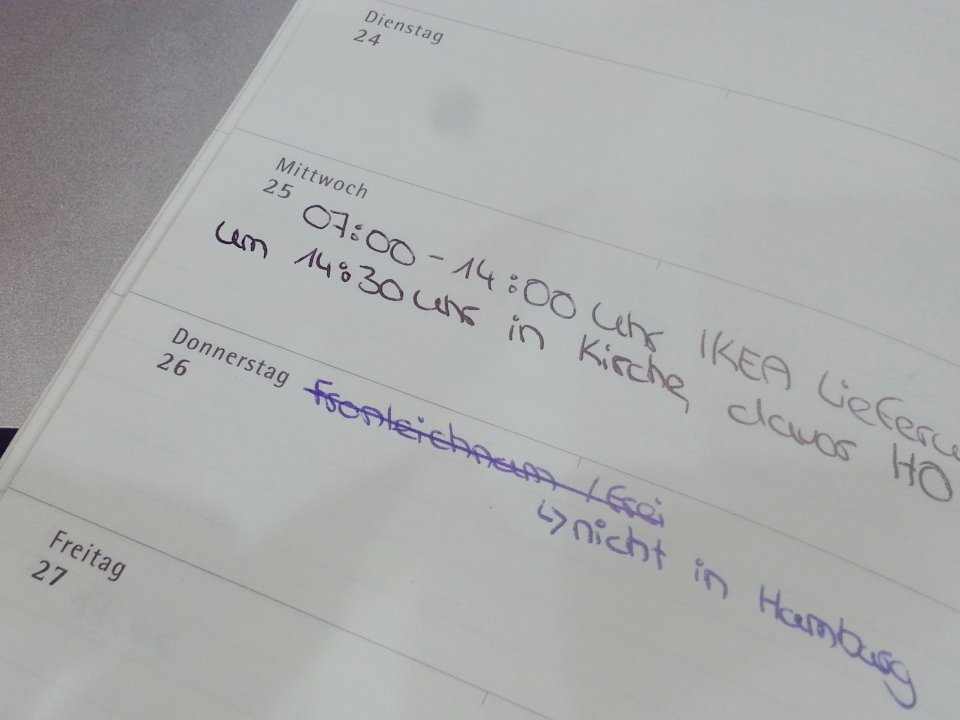 Dienstag
24
Mittwoch
25
07:00 - 14:00 Uhr IKEA
um 14:30 Uhr in Kirche, davor HO
Donnerstag
26
Fronleichnam / Frei
↳ nicht in Hamburg
Freitag
27